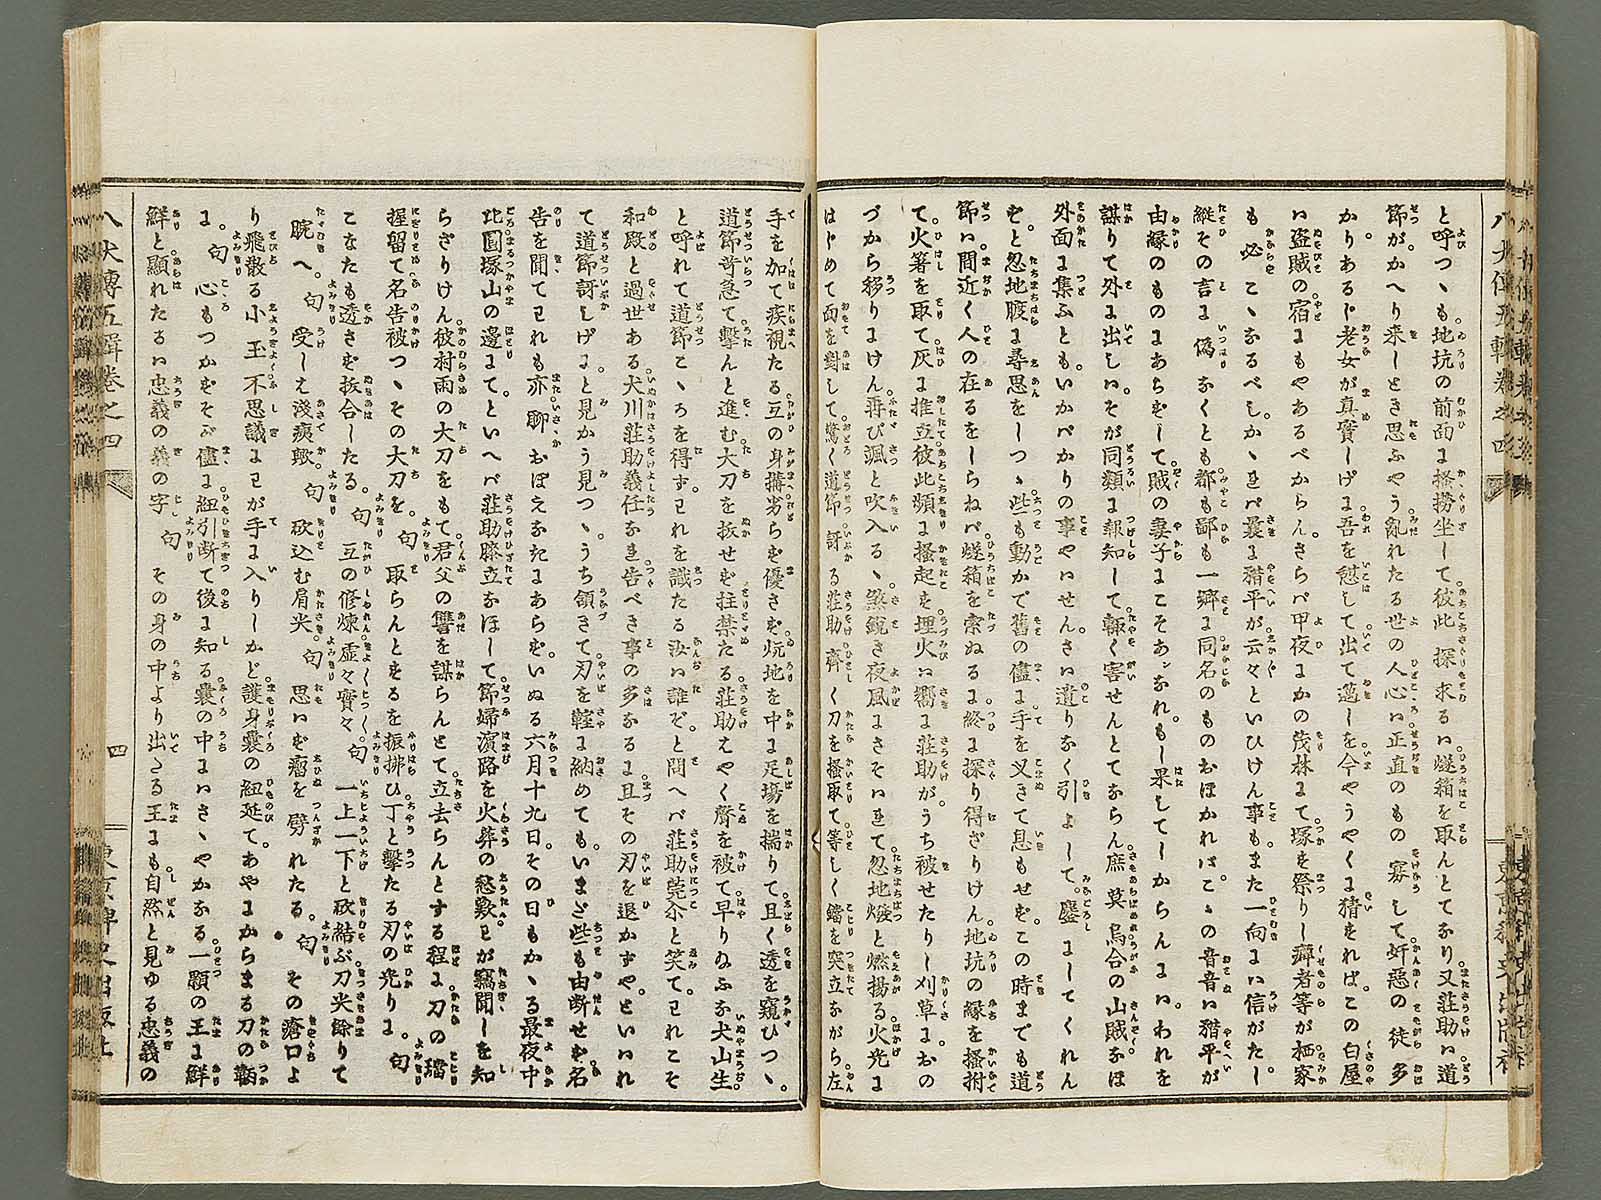 と呼つヽも地坑の前面に搔撈坐して彼此探求るハ燧箱を取んとてなり又荘助ハ道
節がかへり来しとき思ふやう亂れたる世の人心ハ正直のもの寡して奸惡の徒多
かりあるじ老女が真實しげに吾を憩して出て邁しを今やうやくに猜すれバこの白屋
ハ盗賊の宿にもやあるべからんさらバ甲夜にかの茂林にて塚を祭りし癖者等が栖家
も必こヽなるべしかヽれバ曩に猎平が云々といひけん事もまた一向にハ信がたし
縦その言に偽なくとも都も鄙も一郷に同名のものおほかれバこヽの音音ハ猎平が
由縁のものにあらずして賊の妻子にこそあンなれもし果してしからんにハわれを
謀りて外に出しハそが同類に報知して輙く害せんとてならん庶莫烏合の山賊なほ
外面に集ふともいかバかりの事やハせんさハ遺りなく引よして鏖にしてくれん
ずと忽地肚に尋思をしつヽ些も動かで舊の儘に手を叉きて息もせずこの時までも道
節ハ間近く人の在るをしらねバ燧箱を索ぬるに終に探り得ざりけん地坑の縁を搔拊
て火箸を取て灰に推立彼此頻に搔起す埋火ハ嚮に荘助がうち被せたりし刈草におの
づから移りにけん再び颯と吹入るヽ煞銳き夜風にさそハれて忽地燬と燃揚る火光に
はじめて面を對して驚く道節訝る荘助齊く刀を搔取て等しく鐺を突立ながら左
手を加て疾視たる互の身搆劣らず優さず炕地を中に足場を揣りて且く透を窺ひつヽ
道節苛急て擊んと進む大刀を抜せず拄禁たる荘助はやく聲を被て早りなふな犬山生
と呼れて道節こヽろを得ずわれを識たる汝ハ誰ぞと問へバ荘助莞尓と笑てわれこそ
和殿と過世ある犬川荘助義任なれ告べき事の多なるに且その刃を退かずやといハれ
て道節訝しげに見かう見つヽうち領きて刃を鞋に納めてもいまだ些も由断せず名
告を聞てわれも亦聊おぼえなきにあらずいぬる六月十九日その日もかヽる最夜中
此圓塚山の邊にてといへバ荘助膝立なほして節婦濱路を火葬の愁歎わが竊聞しを知
らざりけん彼村雨の大刀をもて君父の讐を謀らんとて立去らんとする程に刀の鐺
握留て名告被つヽその大刀を句取らんとするを振拂ひ丁と擊たる刃の光りに句
こなたも透さず抜合したる句互の修煉虚々實々句一上一下と砍結ぶ刀尖餘りて
腕へ句受しは淺痍歟句砍込む肩尖句思ハず瘤を劈れたる句その瘡口よ
り飛散る小玉不思議にわが手に入りしかど護身嚢の紐延てあやにからまる刀の鞆
に句心もつかずそが儘に紐引断て後に知る嚢の中にハさヽやかなる一顆の玉に鮮
鮮と顯れたるハ忠義の義の字句その身の中より出たる玉にも自然と見ゆる忠義の
八犬傳五輯巻之四
四